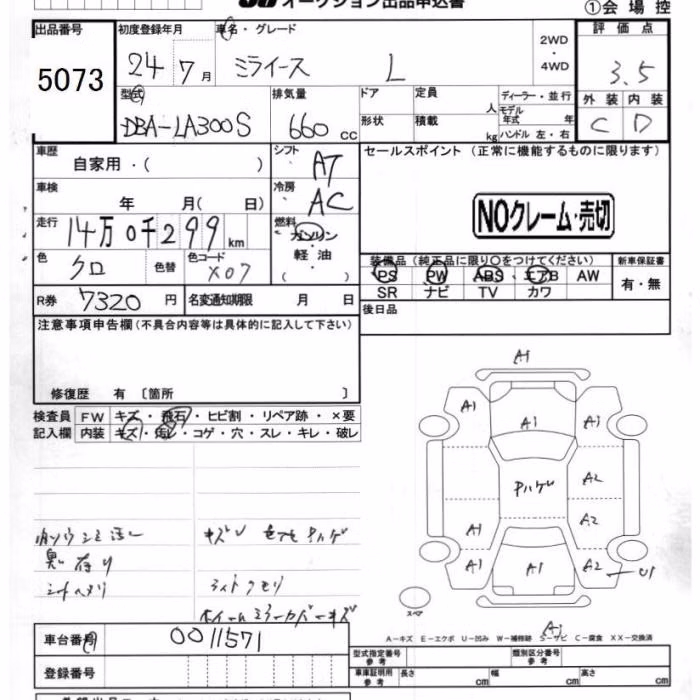 オークション出品申込書
①会場控
出品番号 初度登録年月 車名・グレード 評価点
5073 24年7月 ミライース L 2WD・4WD 3.5
型式 排気量 ドア 定員 人 ディーラー・並行 外装 内装
DBA-LA300S 660cc 形状 積載 kg モデル年式 年 ハンドル 左・右 C D
車歴 自家用・( ) シフト AT セールスポイント (正常に機能するものに限ります)
車検 年 月( 日) 冷房 AC
NOクレーム・売切
走行 14万0千299km 燃料 ガソリン・軽油・( )
色 クロ 色替 色コード X07
装備品(純正品に限り○をつけてください) 新車保証書
PS PW ABS・エアB AW 有・無
SR ナビ TV カワ
R券 7320円 名変通知期限 月 日
後日品
注意事項申告欄(不具合内容等は具体的に記入して下さい)
修復歴 有 〔箇所 〕
検査員 FW キズ・飛石・ヒビ割・リペア跡・×要
記入欄 内装 キズ・汚レ・コゲ・穴・スレ・キレ・破レ
A1
A1 A1 A1
Pハゲ A2
A1 A2
A1 A1 A2 U1
キズ
臭い有り
シートヘタリ ライトクモリ
ホイール ミラーカバーキズ
スペア
A1
A-キズ E-エクボ U-凹み W-補修跡 S-サビ C-腐食 XX-交換済
車台番号 0011571
型式指定番号 参考 類別区分番号 参考
登録番号
車庫証明用 参考 長さ cm 幅 cm 高さ cm